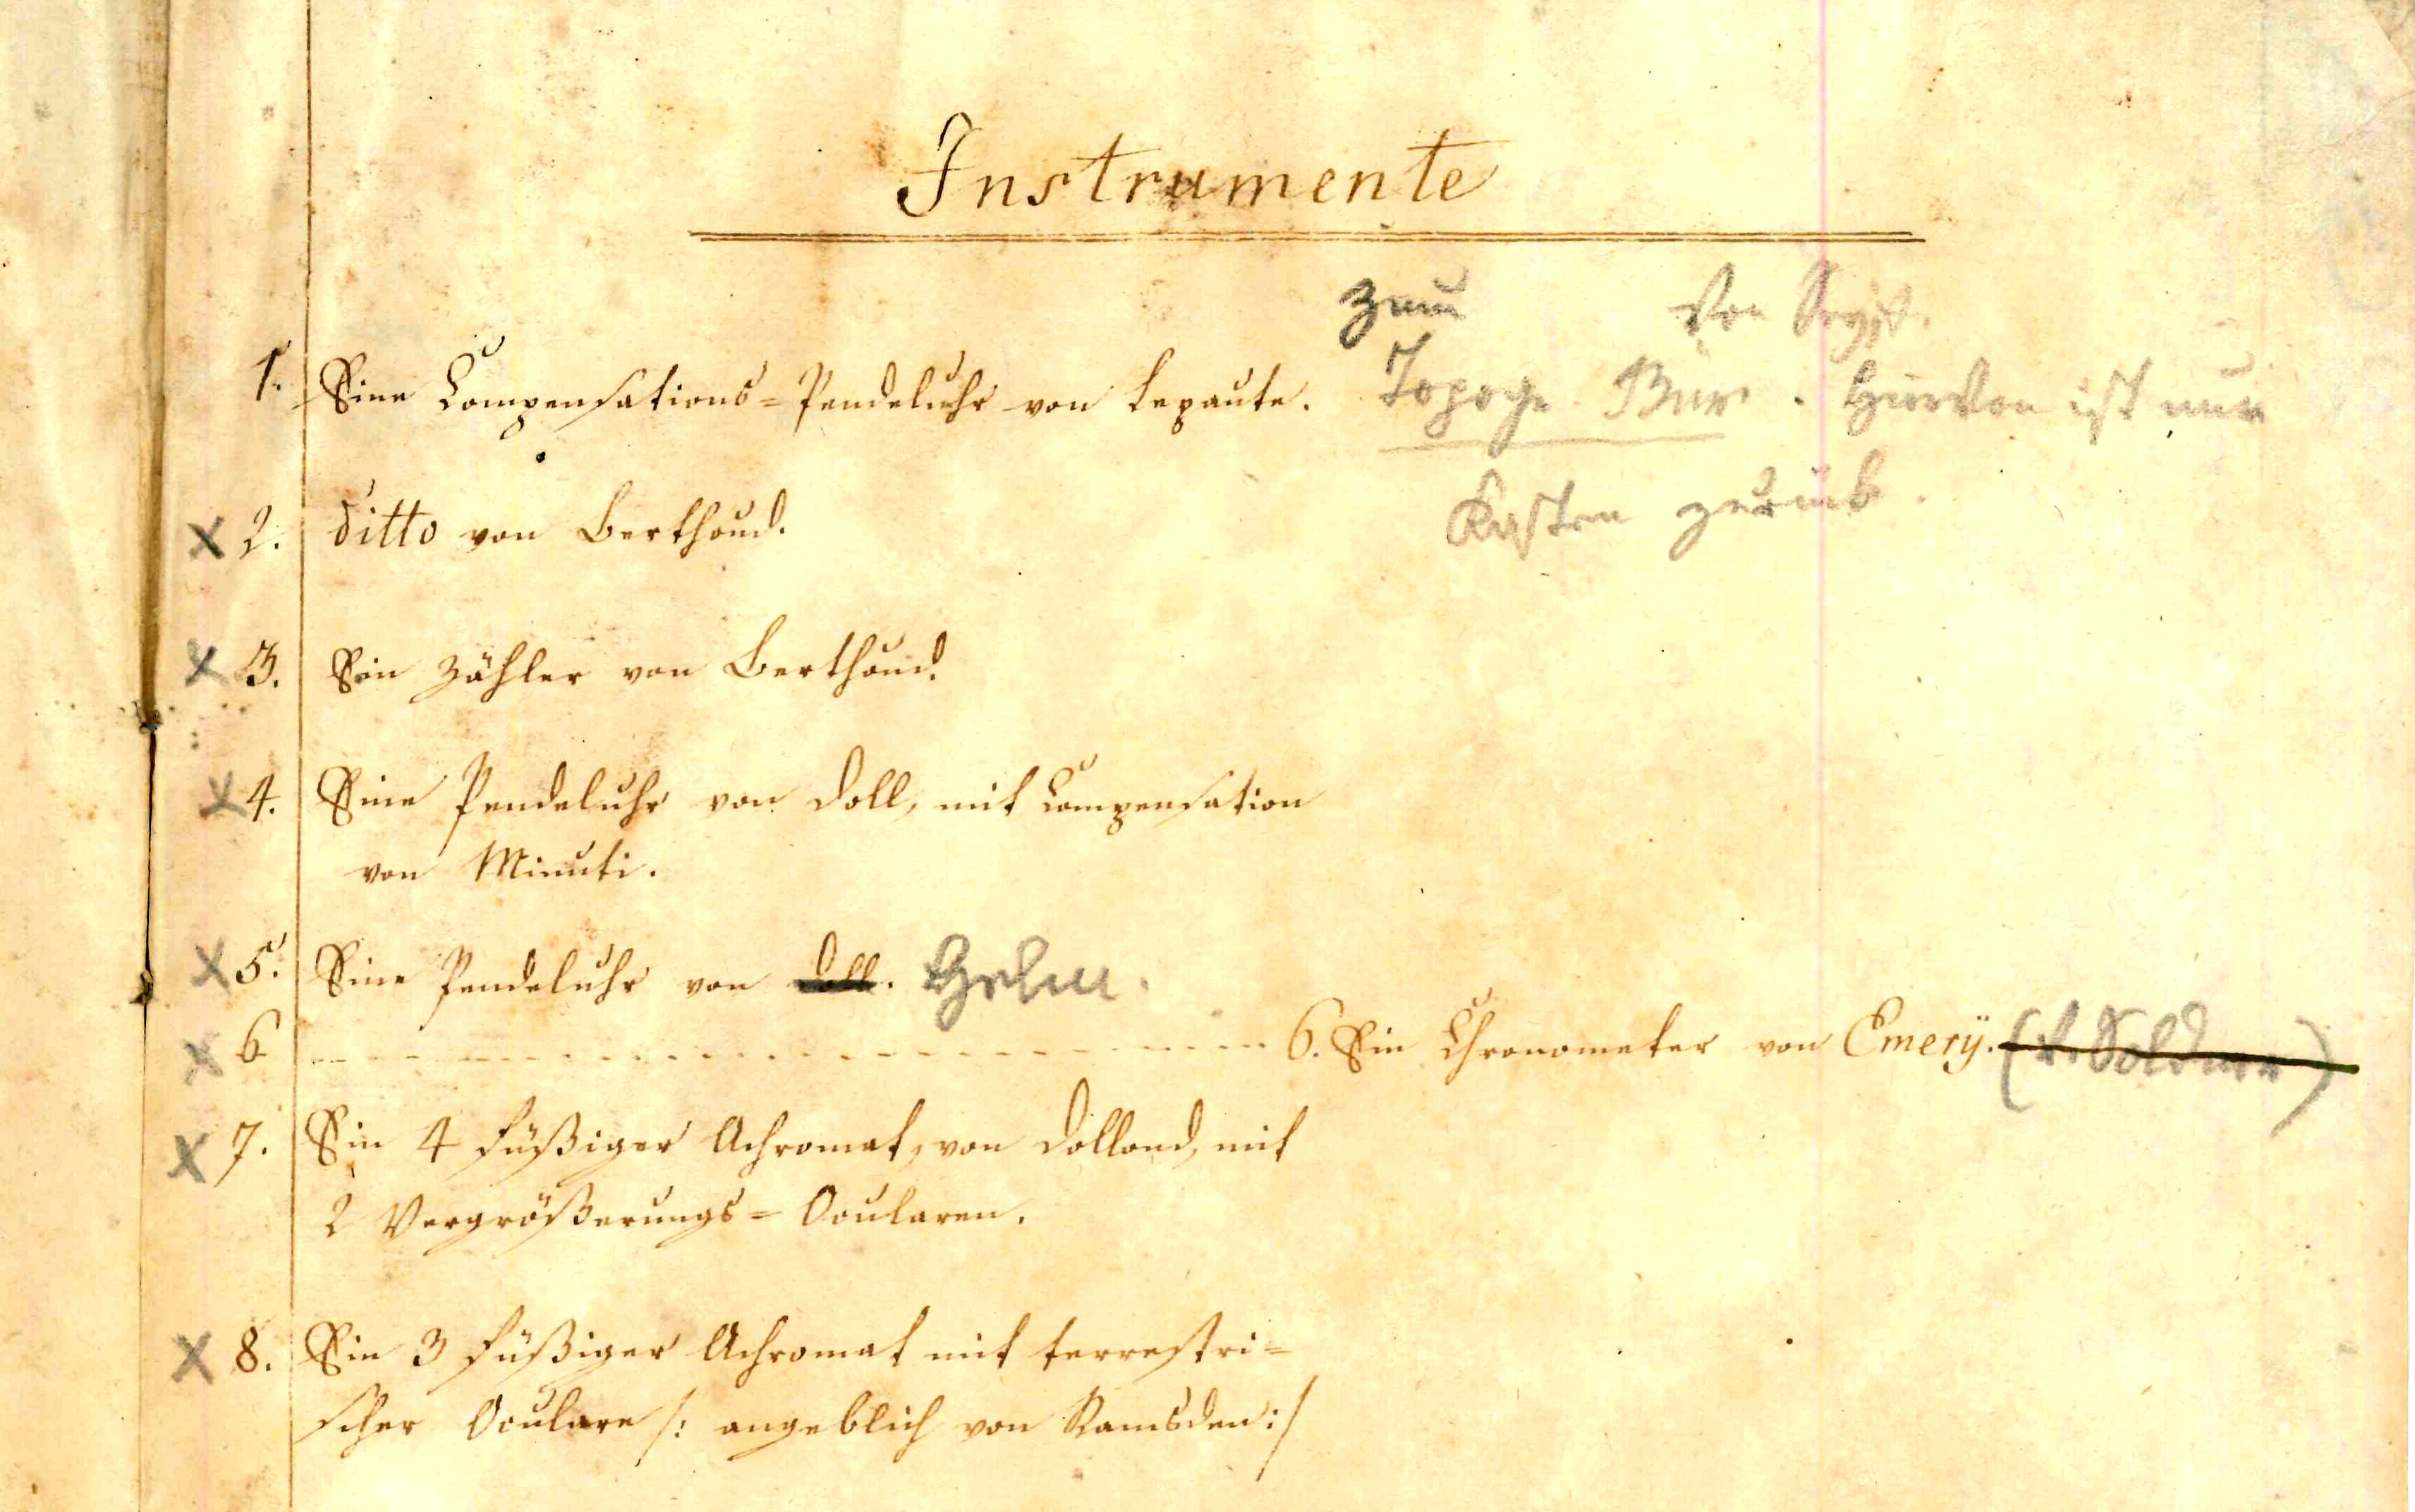 Instrumente
zum
1. Eine Compensations=Pendeluhr von Lepaute. Topogr. Bur. Hievon ist nur
Kasten zurück.
x 2. ditto von Berthoud.
x 3. Ein Zähler von Berthoud.
x 4. Eine Pendeluhr von Doll, mit Compensation
von Minuti.
x 5. Eine Pendeluhr von Doll.
x 6 6. Ein Chronometer von Emerÿ. (v. Soldner)
x 7. Ein 4 füßiger Achromat, von Dollond, mit
2 Vergrößerungs= Ocularen.
x 8. Ein 3 füßiger Achromat mit terrestri=
scher Oculare /: angeblich von Ramsden :/